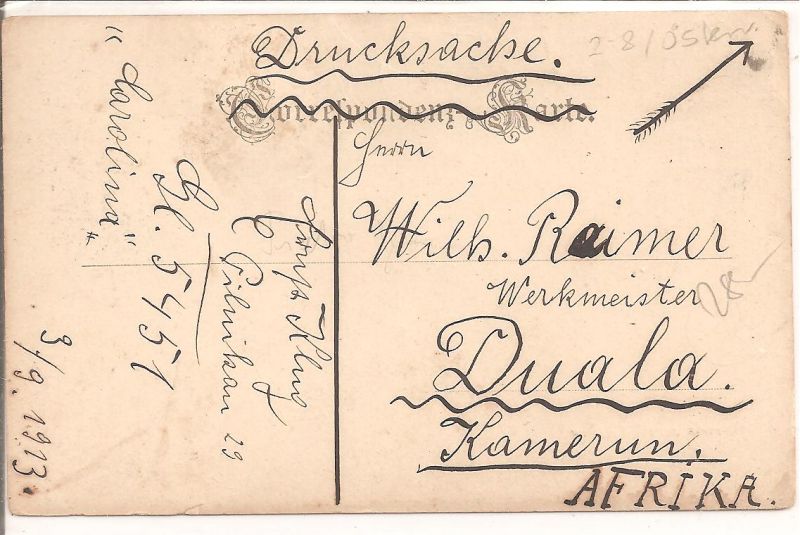 Drucksache.
Correspondenz-Karte.
Herrn
Wilh. Raimer
Werkmeister
Duala.
Kamerun.
AFRIKA.
"Carolina"
Gl. 5451
Klug
29
3/9. 1913.